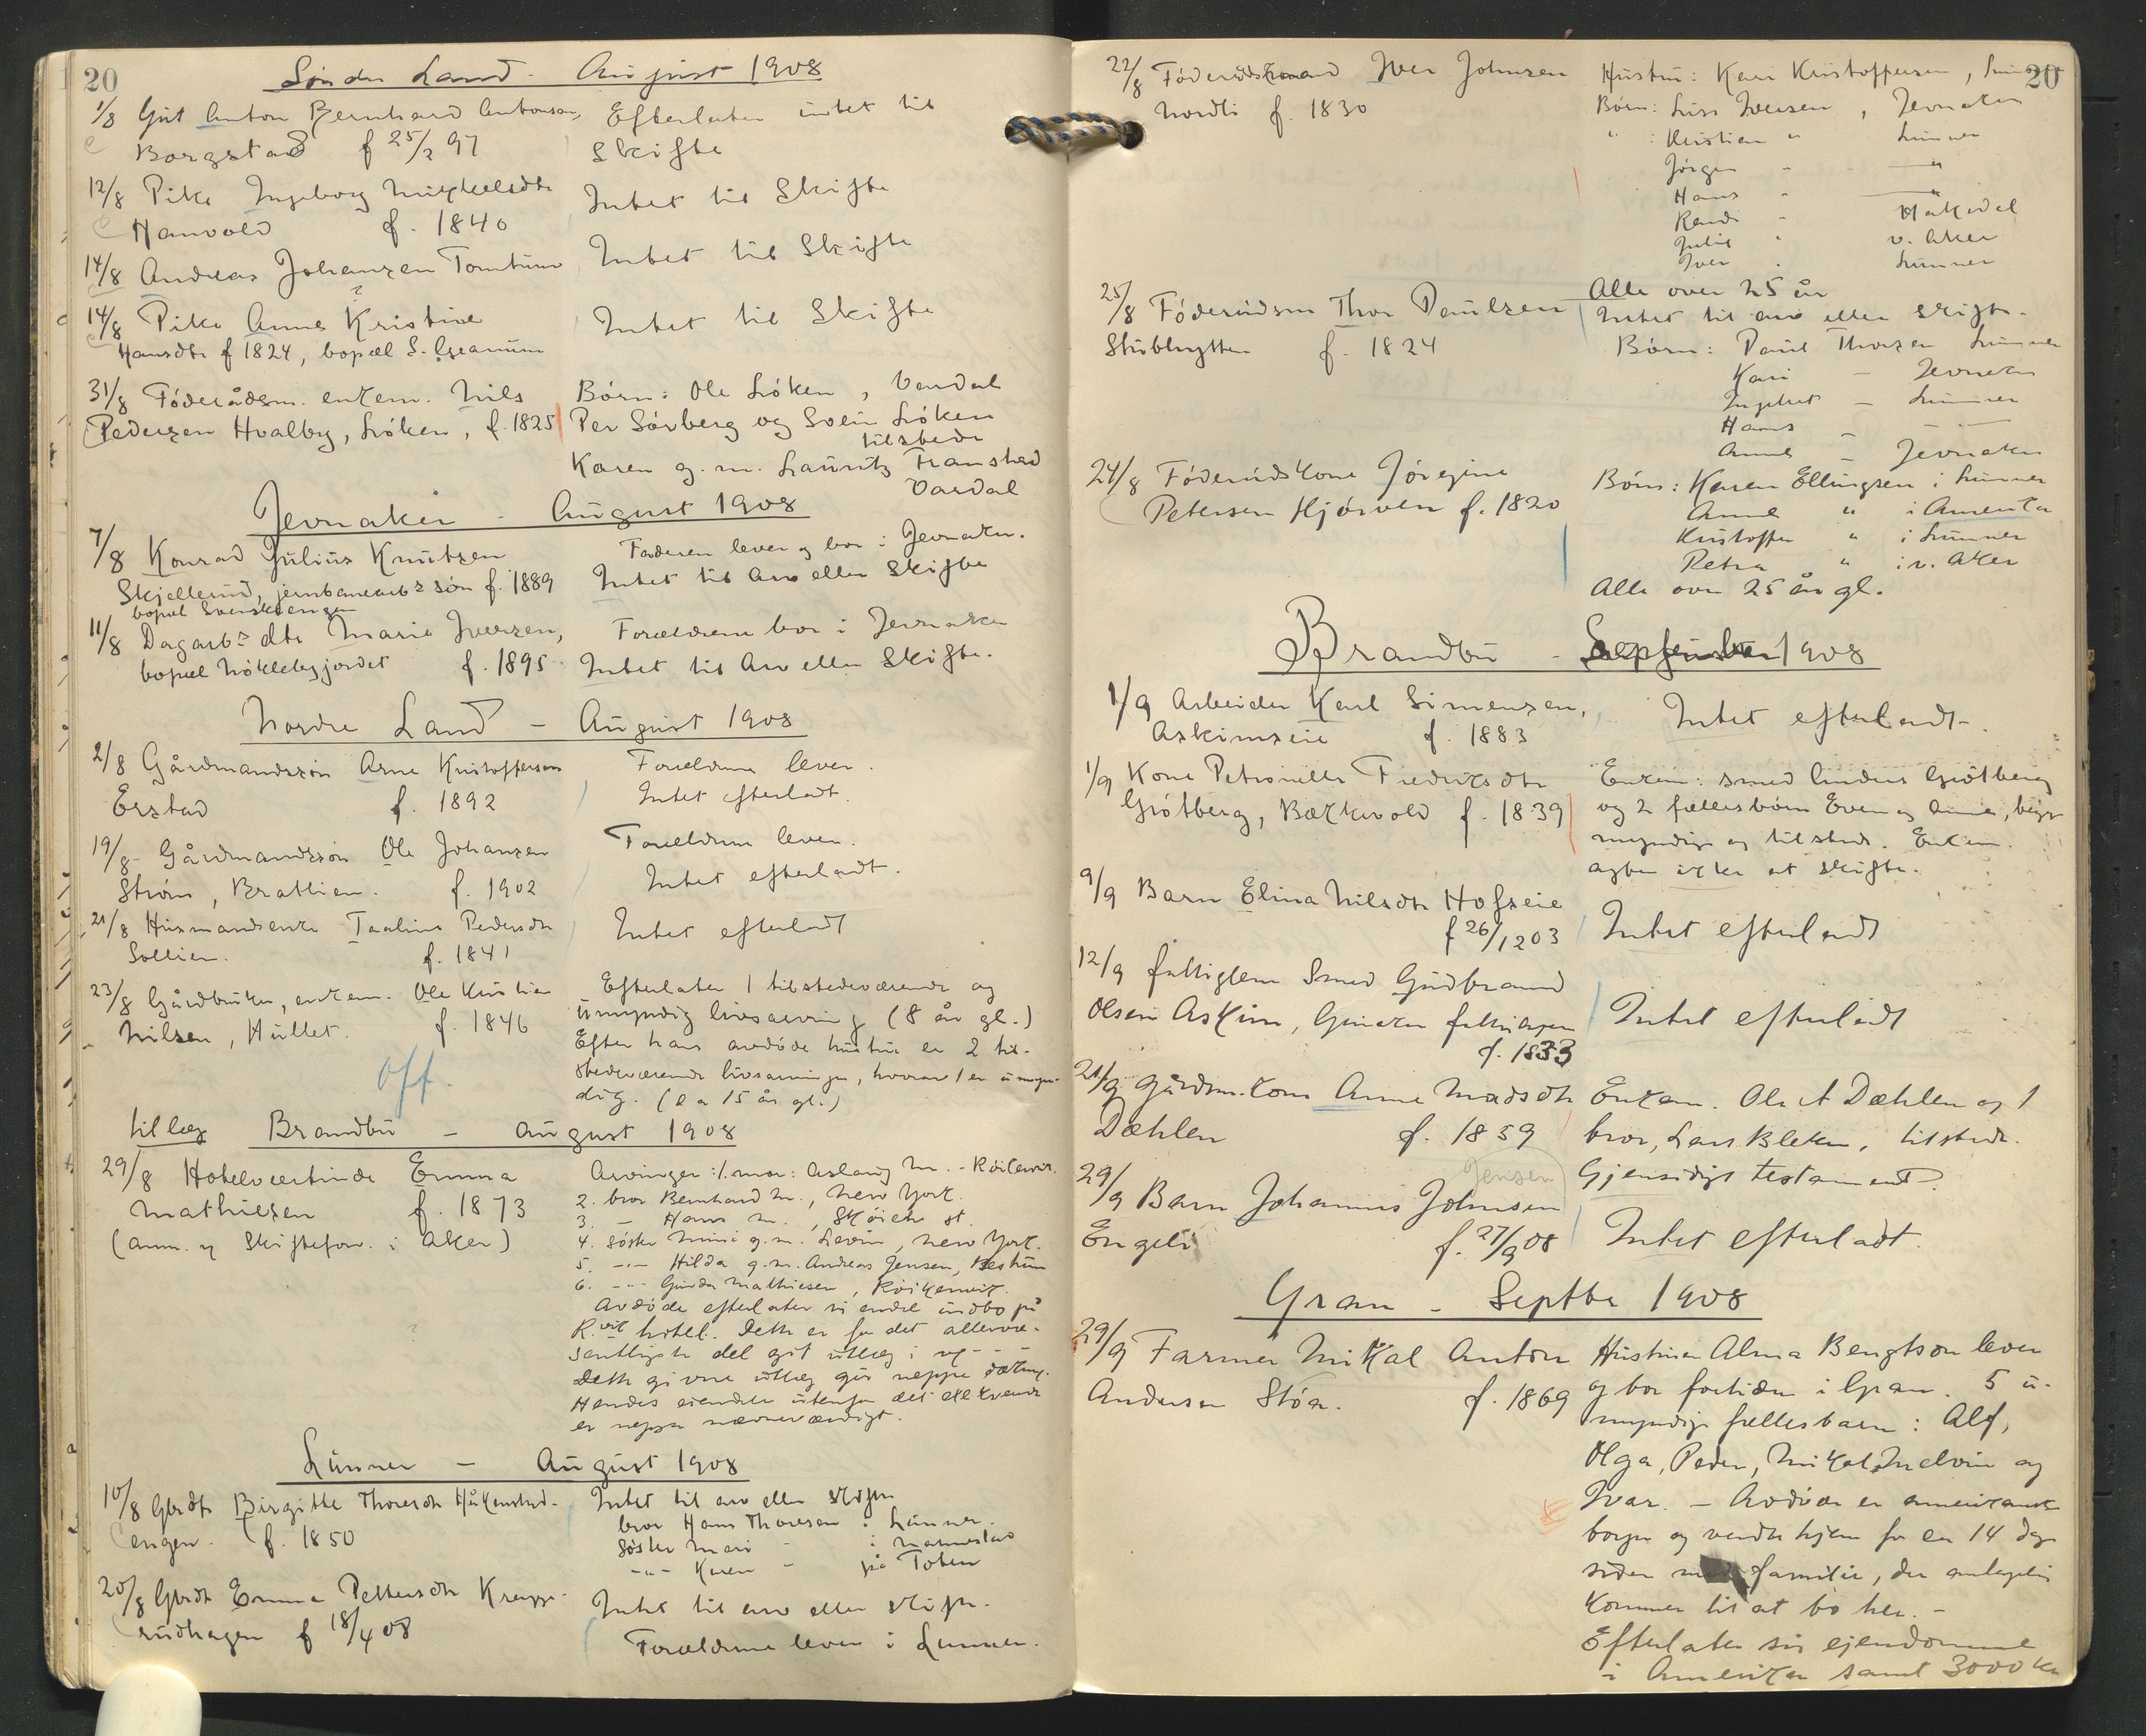 20
Søndre Land - August 1908
1/8 Gut Anton Bernhard Antonsen, Efterlater intet til
Borgstad f 25/2 97 Skifte
12/8 Pike Ingeborg Mikkelsdtr Intet til Skifte
Hanvold f. 1840
14/8 Andreas Johansen Tomtum Intet til Skifte
?
14/8 Pike Anne Kristine Intet til Skifte
Hansdtr f 1824, bopæl S.
31/8 Föderådsm. enkem. Nils Børn: Ole Löken, Vardal
Pedersen Hvalby, Löken, f. 1825 Per Sörberg og Svein Löken
tilstede
Karen g. m. Lauritz Transtad
Vardal
Jevnaker - August 1908
7/8 Konrad Julius Knutsen Faderen lever og bor i Jevnaker.
Skjellerud, jernbanearbs søn f. 1889 Intet til Arv eller Skifte
bopæl Svenskengen
11/8 Dagarbs dtr Marie Iversen, Forældrene bor i Jevnaker
bopæl Nöklebyjordet f. 1895 Intet til Arv eller Skifte.
Nordre Land - August 1908
2/8 Gårdmandssøn Arne Kristoffersen Forældrene lever.
Erstad f. 1892 Intet efterladt.
19/8 Gårdmandssøn Ole Johansen Forældrene lever.
Strøm, Brattlien. f. 1902 Intet efterladt.
21/8 Husmandsenke Taaline Pedersdtr Intet efterladt
Sollien. f. 1841
23/8 Gårdbruker, enkem. Ole Kristian Efterlater 1 tilstedeværende og
Nilsen, Hullet. f. 1846 umyndig livsarving (8 år gl.)
Efter hans avdøde hustru er 2 til-
stedeværende livsarvinger, hvorav 1 er umyn-
dig. (ca 15 år gl.)
Off.
tillæg Brandbu - August 1908
29/8 Hotelværtinde Emma Arvinger: 1. mor: Aslaug M. - Röikenvik.
Mathiesen f. 1873 2. bror Bernhard M., New York.
3. - Hans M., Skøien st.
(anm. og Skiftefor. i Aker) 4. søster Mimi g.m. Lievin, New York.
5. -"- Hilda g.m. Andreas Jensen, Bestum
6. -"- Gunda Mathiesen, Röikenvik.
Avdøde efterlater si endel indbo på
R.vik hotel. Dette er for det allervæ-
sentligste del git utlæg i
Dette givne utlæg gir neppe dækng.
Hendes eiendele utenfor det
er neppe nævneværdigt.
Lunner - August 1908
10/8 Gbrdtr Birgitte Thoresdtr Håkenstad- Intet til arv eller skifte
engen. f. 1850 bror Hans Thoresen i Lunner.
Søster Mari - i Nannestad
-"- Karen - på Toten
20/8 Gbrdtr Emma Pettersdtr Intet til arv eller skifte.
rudhagen f 18/4 08 Forældrene lever i Lunner.
20
22/8 Föderådsmand Iver Johnsen Hustru: Kari Kristoffersen, Lunner
Nordli f. 1830 Børn: Lisa Iversen, Jevnaker
" : Kristian " Lunner
Jörgen - "
Hans - "
Randi - Hakedal
Julie " v. Aker
Iver . Lunner
Alle over 25 år
25/8 Föderådsm Thor Paulsen Intet til arv eller skifte.
Stubhytten f. 1824 Børn: Paul Thorsen Lunner
Kari - Jevnaker
Ingebret - Lunner
Hans - -
Anne - Jevnaker
24/8 Föderådskone Jörgine Börn: Karen Ellingsen i Lunner
Petersen Hjörven f. 1820 Anne " i Amerika
Kristoffer " i Lunner
Petra " i v. Aker
Alle over 25 år gl.
Brandbu - September 1908
1/9 Arbeider Karl Simensen, Intet efterladt.
Askimseie f. 1883
1/9 Kone Petronelle Fredriksdtr Enkem: smed Anders Grötberg
Grötberg, Bækkvold f. 1839 og 2 fællesbörn Even og Anne, begge
myndige og tilstede. Enkem.
agter ikke at skifte.
9/9 Barn Elina Nilsdtr Hofseie Intet efterladt
f 26/12 03
12/9 fattiglem Smed Gudbrand Intet efterladt
Olsen Askim, Gmaker
f. 1833
21/9 Gårdm. kone Anne Madsdtr Enkem. Ole A Dæhlen og 1
Dæhlen f. 1859 bror, Lars Bleken, tilstede.
Gjensidigt testament.
Jensen
29/9 Barn Johannes Johnsen Intet efterladt.
Engeli f. 27/9 08
Gran - Septbr 1908
29/9 Farmer Mikal Anton Hustruen Alma Bengtson lever
Andersen Stöa. f. 1869 og bor fortiden i Gran. 5 u-
myndige fællesbarn: Alf,
Olga, Peder, Mikal Melvin og
Ivar. - Avdøde er amerikansk
borger og vendte hjem for en 14 dage
siden med familie, der antagelig
kommer til at bo her. -
Efterlater sig ejendomme
i Amerika samt 3000 kr